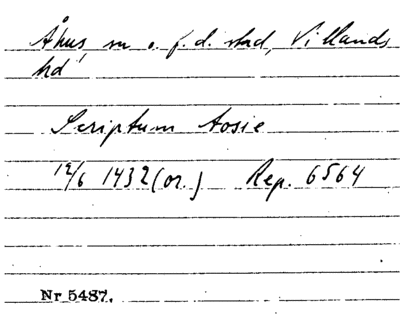 Åhus, sn o. f. d. stad, Villands
hd
Scriptum Aosie
12/6 1432 (or.) Rep. 6564
Nr 5487.